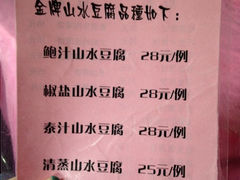 金牌山水豆腐品種如下：
鲍汁山水豆腐 28元/例
椒盐山水豆腐 28元/例
泰汁山水豆腐 28元/例
清蒸山水豆腐 25元/例